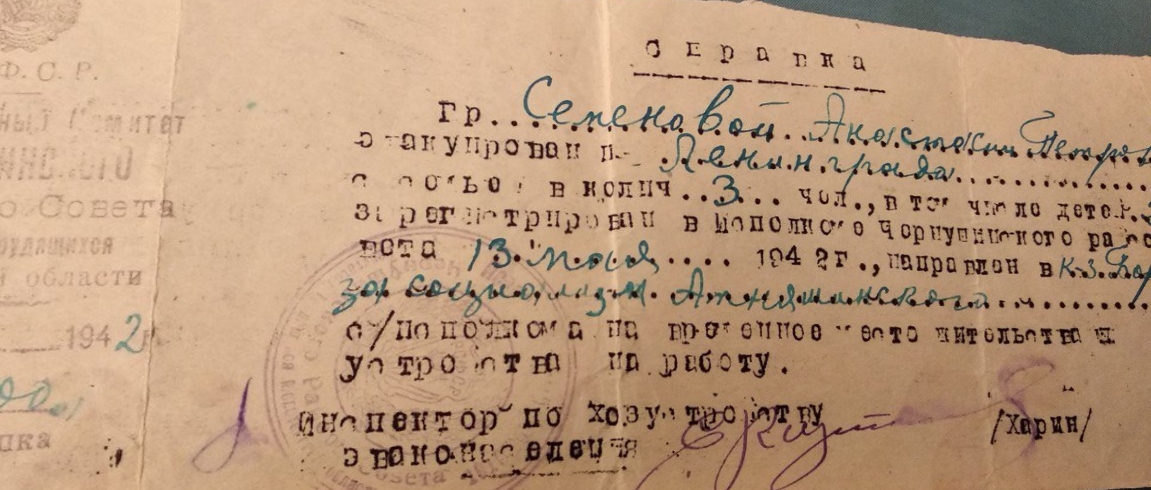 Ф.С.Р.
ный Комитет
о Совета
рудящихся
й области
1942 г
пка
Справка
Гр. Семеновой Анастасии Петр
эвакуирован из Ленинграда
с семьей в колич. 3 чел., в том числе детей
зарегистрирован в Исполкоме Чернушинского рай
вета 13 мая 1942г., направлен в к-з
за социализм Атняшинского
с/исполкома на временное место жительства и
устройства на работу.
Инспектор по хозустройству
эваконаселения
/Харин/